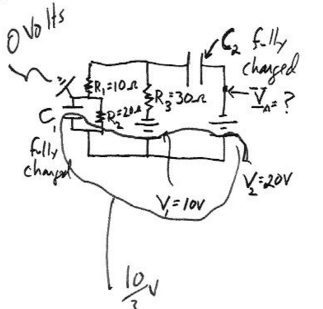 0 Volts
C₂ fully
charged
R₁=10Ω
R₃=30Ω
V_A=?
C₁
R₂=20Ω
fully
charged
V₁=10V
V₂=20V
10/3 V